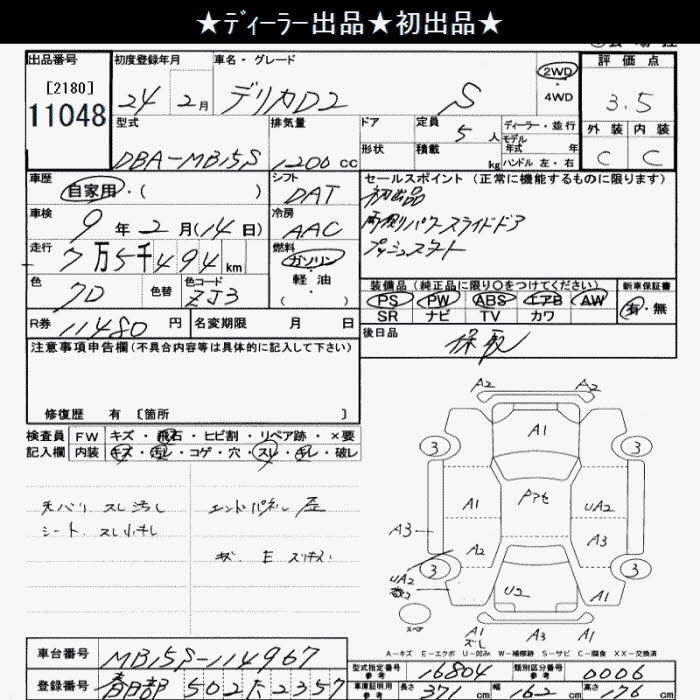 ★ﾃﾞｨｰﾗｰ出品★初出品★
出品番号 初度登録年月 車名・グレード 評価点
[2180]
11048
24 2月 デリカD2 S 2WD・4WD 3.5
型式 排気量 ドア 定員 5人 ディーラー・並行 外装 内装
DBA-MB15S 1200cc 形状 積載 kg モデル年式 年 ハンドル 左・右 C C
車歴 シフト セールスポイント（正常に機能するものに限ります）
自家用・( ) DAT 初出品
車検 冷房 両側パワースライドドア
9年2月(14日) AAC プッシュスタート
走行 燃料
7万5千494km ガソリン 装備品（純正品に限り○をつけてください） 新車保証書
色 色替 色コード 軽油 PS PW ABS エアB AW 有・無
7D ZJ3 ( ) SR ナビ TV カワ
R券 11480円 名変期限 月 日 後日品
注意事項申告欄（不具合内容等は具体的に記入して下さい） 保取
修復歴 有 〔箇所 〕
検査員 FW キズ・飛石・ヒビ割・リペア跡・×要
記入欄 内装 キズ・汚レ・コゲ・穴・スレ・キレ・破レ
天バリ スレ汚レ エンドパネル
シート スレ
A2 A2
A1
3 3
A1 UA2
A3 A2 A3
UA2
3 3
U2 A1
スペア
A1 A3 A1
A-キズ E-エクボ U-凹み W-補修跡 S-サビ C-腐食 XX-交換済
車台番号 MB15S-114967
型式指定番号 参考 16804 類別区分番号 参考 0006
登録番号 春日部 502 た 2357
車庫証明用 参考 長さ 371cm 幅 162cm 高さ 176cm